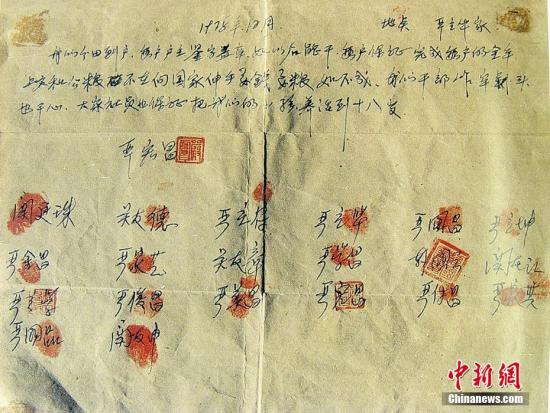 1978年12月. 地点 严立华家
我们分田到户，每户户主签字盖章，如以后能干，每户保证完成每户的全年
上交和公粮，不在向国家伸手要钱要粮。如不成，我们干部作牢刹头
也干心，大家社员也保证把我们的小孩养活到十八岁。
严宏昌
关廷珠 关友德 严立符 严立华 严国昌 严立坤
严金昌 严家芝 关友章 严学昌 韩国云 关友江
严立学 严俊昌 严美昌 严宏昌 严付昌 严家其
严国品 关友申
中新网
Chinanews.com